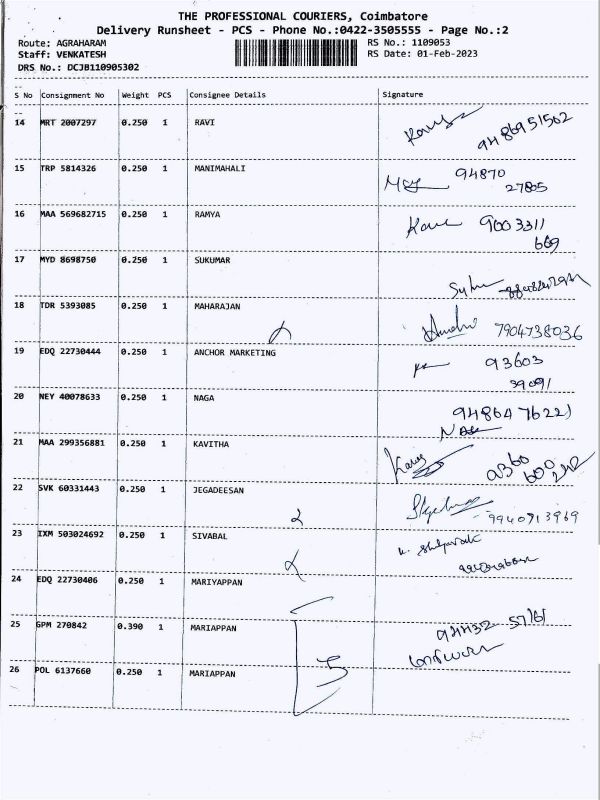 THE PROFESSIONAL COURIERS, Coimbatore
Delivery Runsheet - PCS - Phone No.:0422-3505555 - Page No.:2
Route: AGRAHARAM
Staff: VENKATESH
DRS No.: DCJB110905302
RS No.: 1109053
RS Date: 01-Feb-2023
S No Consignment No Weight PCS Consignee Details Signature
14 MRT 2007297 0.250 1 RAVI
9486951562
15 TRP 5814326 0.250 1 MANIMAHALI 94870
27805
16 MAA 569682715 0.250 1 RAMYA 9003311
669
17 MYD 8698750 0.250 1 SUKUMAR
18 TDR 5393085 0.250 1 MAHARAJAN 7904738036
19 EDQ 22730444 0.250 1 ANCHOR MARKETING 93603
39091
20 NEY 40078633 0.250 1 NAGA 9486476221
21 MAA 299356881 0.250 1 KAVITHA
22 SVK 60331443 0.250 1 JEGADEESAN
2 9940913969
23 IXM 503024692 0.250 1 SIVABAL
24 EDQ 22730406 0.250 1 MARIYAPPAN
25 GPM 270842 0.390 1 MARIAPPAN 94432 57161
26 POL 6137660 0.250 1 MARIAPPAN 5